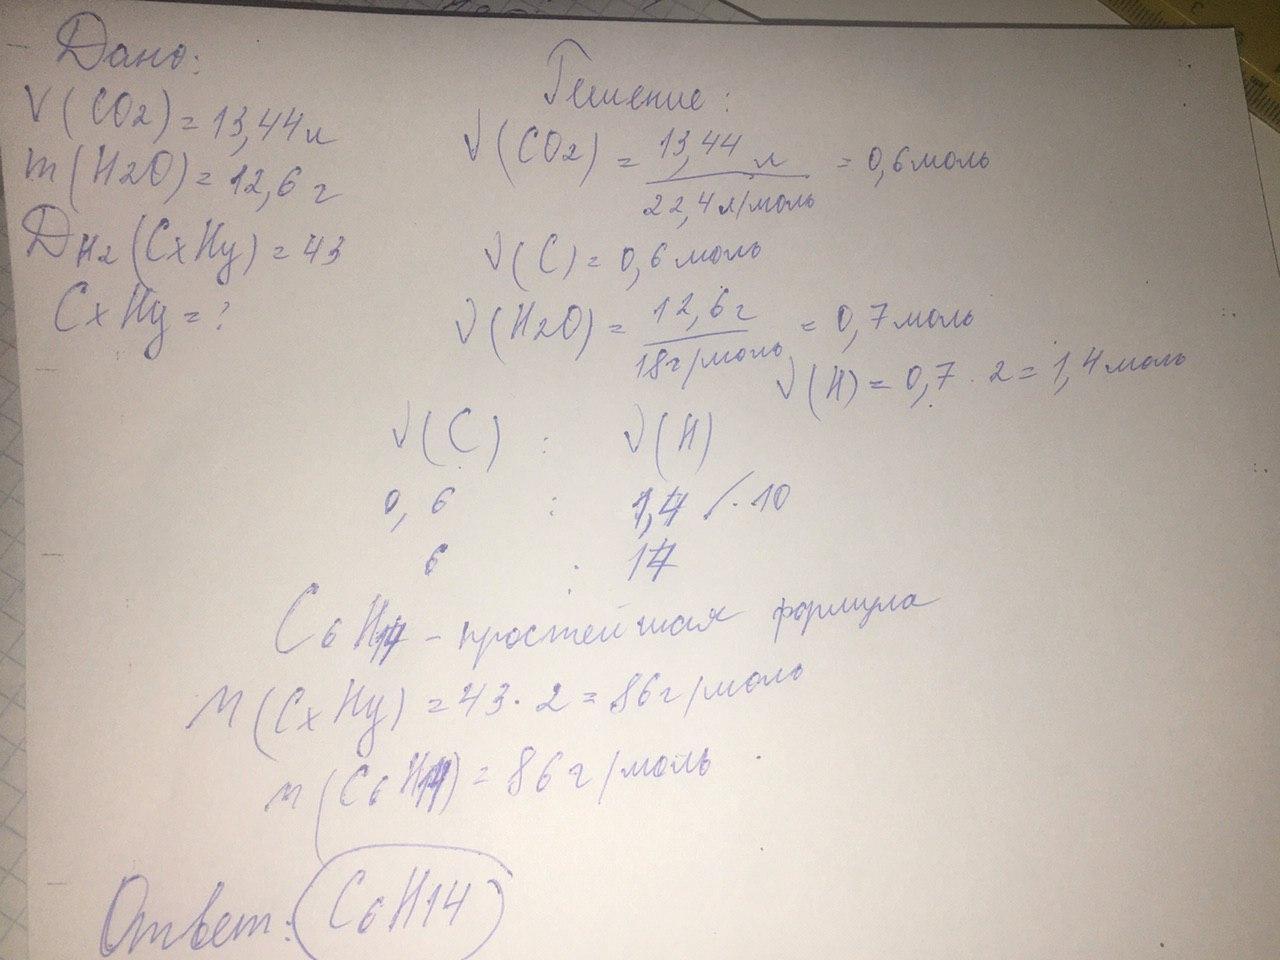 Дано:
V(CO2) = 13,44 л
m(H2O) = 12,6 г
DH2(CxHy) = 43
CxHy = ?
Решение:
ν(CO2) = 13,44 л / 22,4 л/моль = 0,6 моль
ν(C) = 0,6 моль
ν(H2O) = 12,6 г / 18 г/моль = 0,7 моль
ν(H) = 0,7 · 2 = 1,4 моль
ν(C) : ν(H)
0,6 : 1,4 / · 10
6 : 14
C6H14 - простейшая формула
M(CxHy) = 43 · 2 = 86 г/моль
M(C6H14) = 86 г/моль
Ответ: C6H14